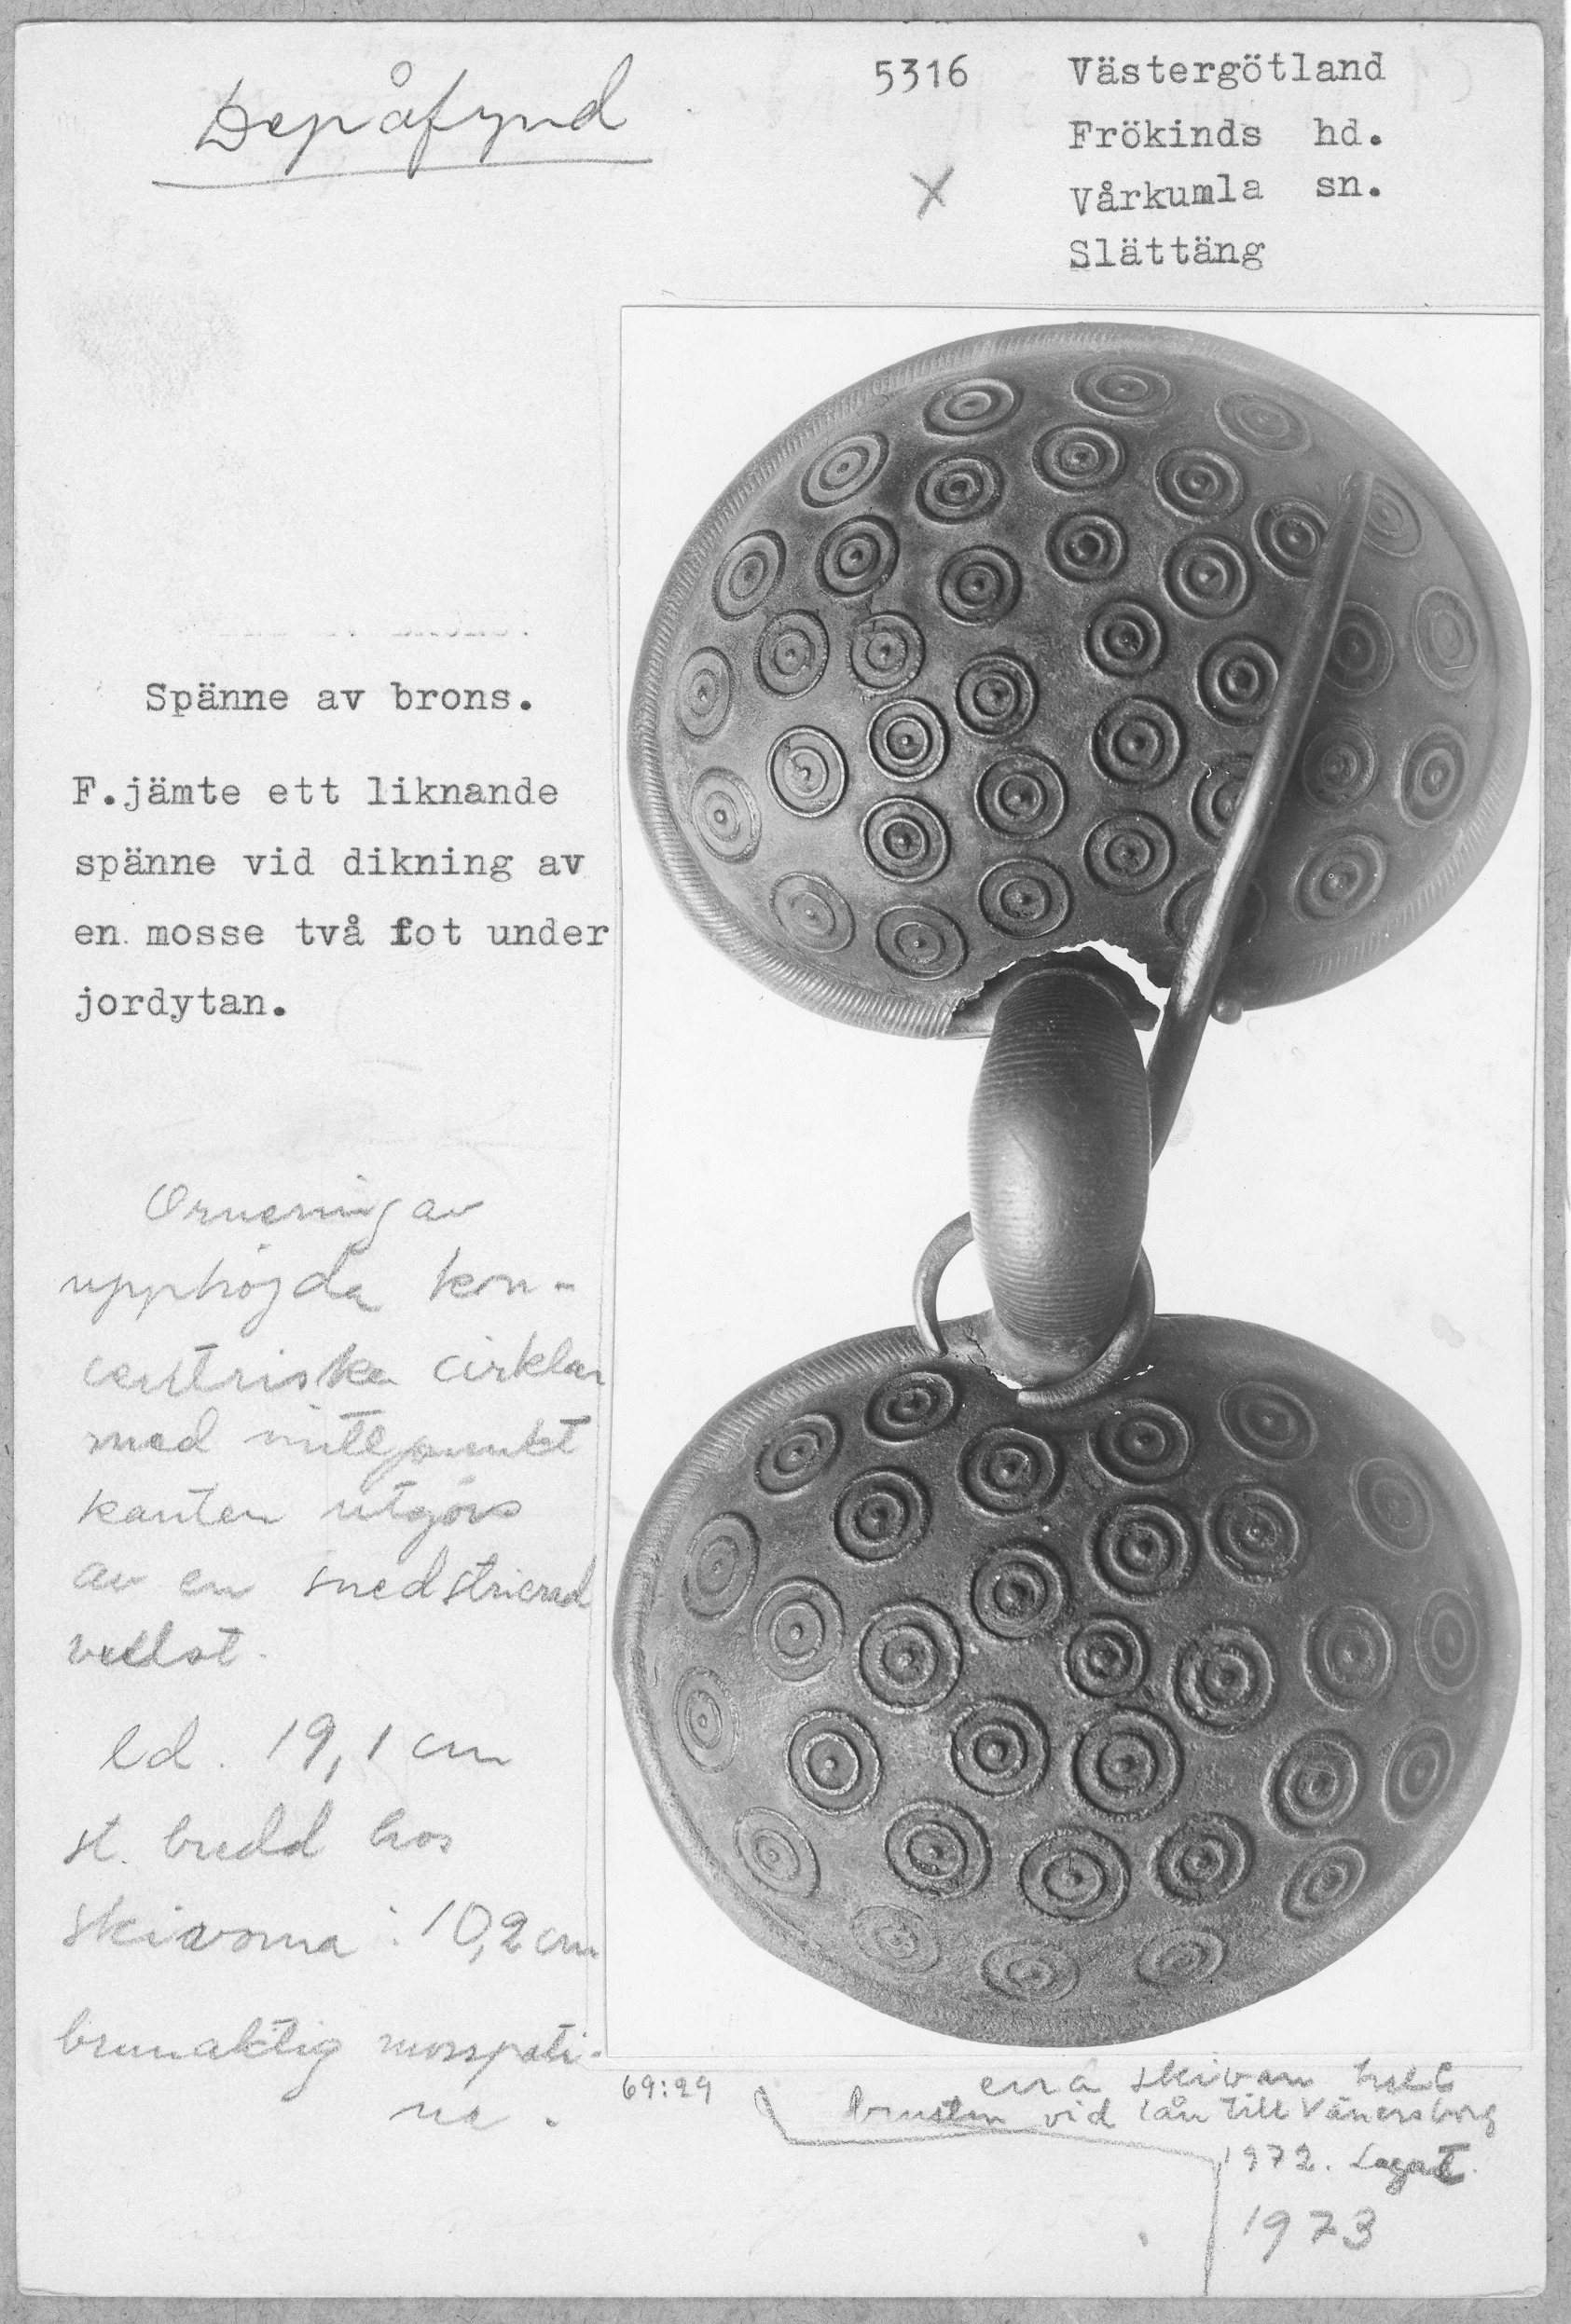 Depåfynd
5316
X
Västergötland
Frökinds hd.
Vårkumla sn.
Slättäng
Spänne av brons.
F.jämte ett liknande
spänne vid dikning av
en mosse två fot under
jordytan.
Ornering av
upphöjda kon-
centriska cirklar
med mittpunkt
kanten utgörs
av en snedstrierad
vullst.
ld. 19,1 cm
st. bredd hos
skivorna : 10,2 cm
brunaktig mosspati-
na.
69:29
ena skivan helt
brusten vid lån till Vänersborg
1972. Lagat
1973